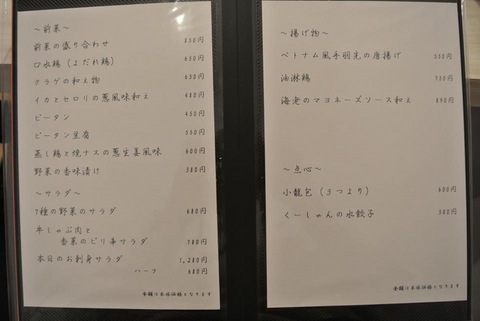 ～前菜～
前菜の盛り合わせ 850円
口水鶏（よだれ鶏） 650円
クラゲの和え物 650円
イカとセロリの葱風味和え 480円
ピータン 450円
ピータン豆腐 550円
蒸し鶏と焼ナスの葱生姜風味 600円
野菜の香味漬け 380円
～サラダ～
7種の野菜のサラダ 680円
牛しゃぶ肉と
香菜のピリ辛サラダ 780円
本日のお刺身サラダ 1,280円
ハーフ 680円
金額は本体価格となります
～揚げ物～
ベトナム風手羽先の唐揚げ 550円
油淋鶏 750円
海老のマヨネーズソース和え 850円
～点心～
小龍包（3つより） 600円
くーしゃんの水餃子 500円
金額は本体価格となります